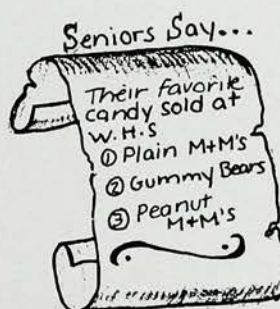 Seniors Say...
Their favorite
candy sold at
W.H.S
① Plain M+M's
② Gummy Bears
③ Peanut
M+M's